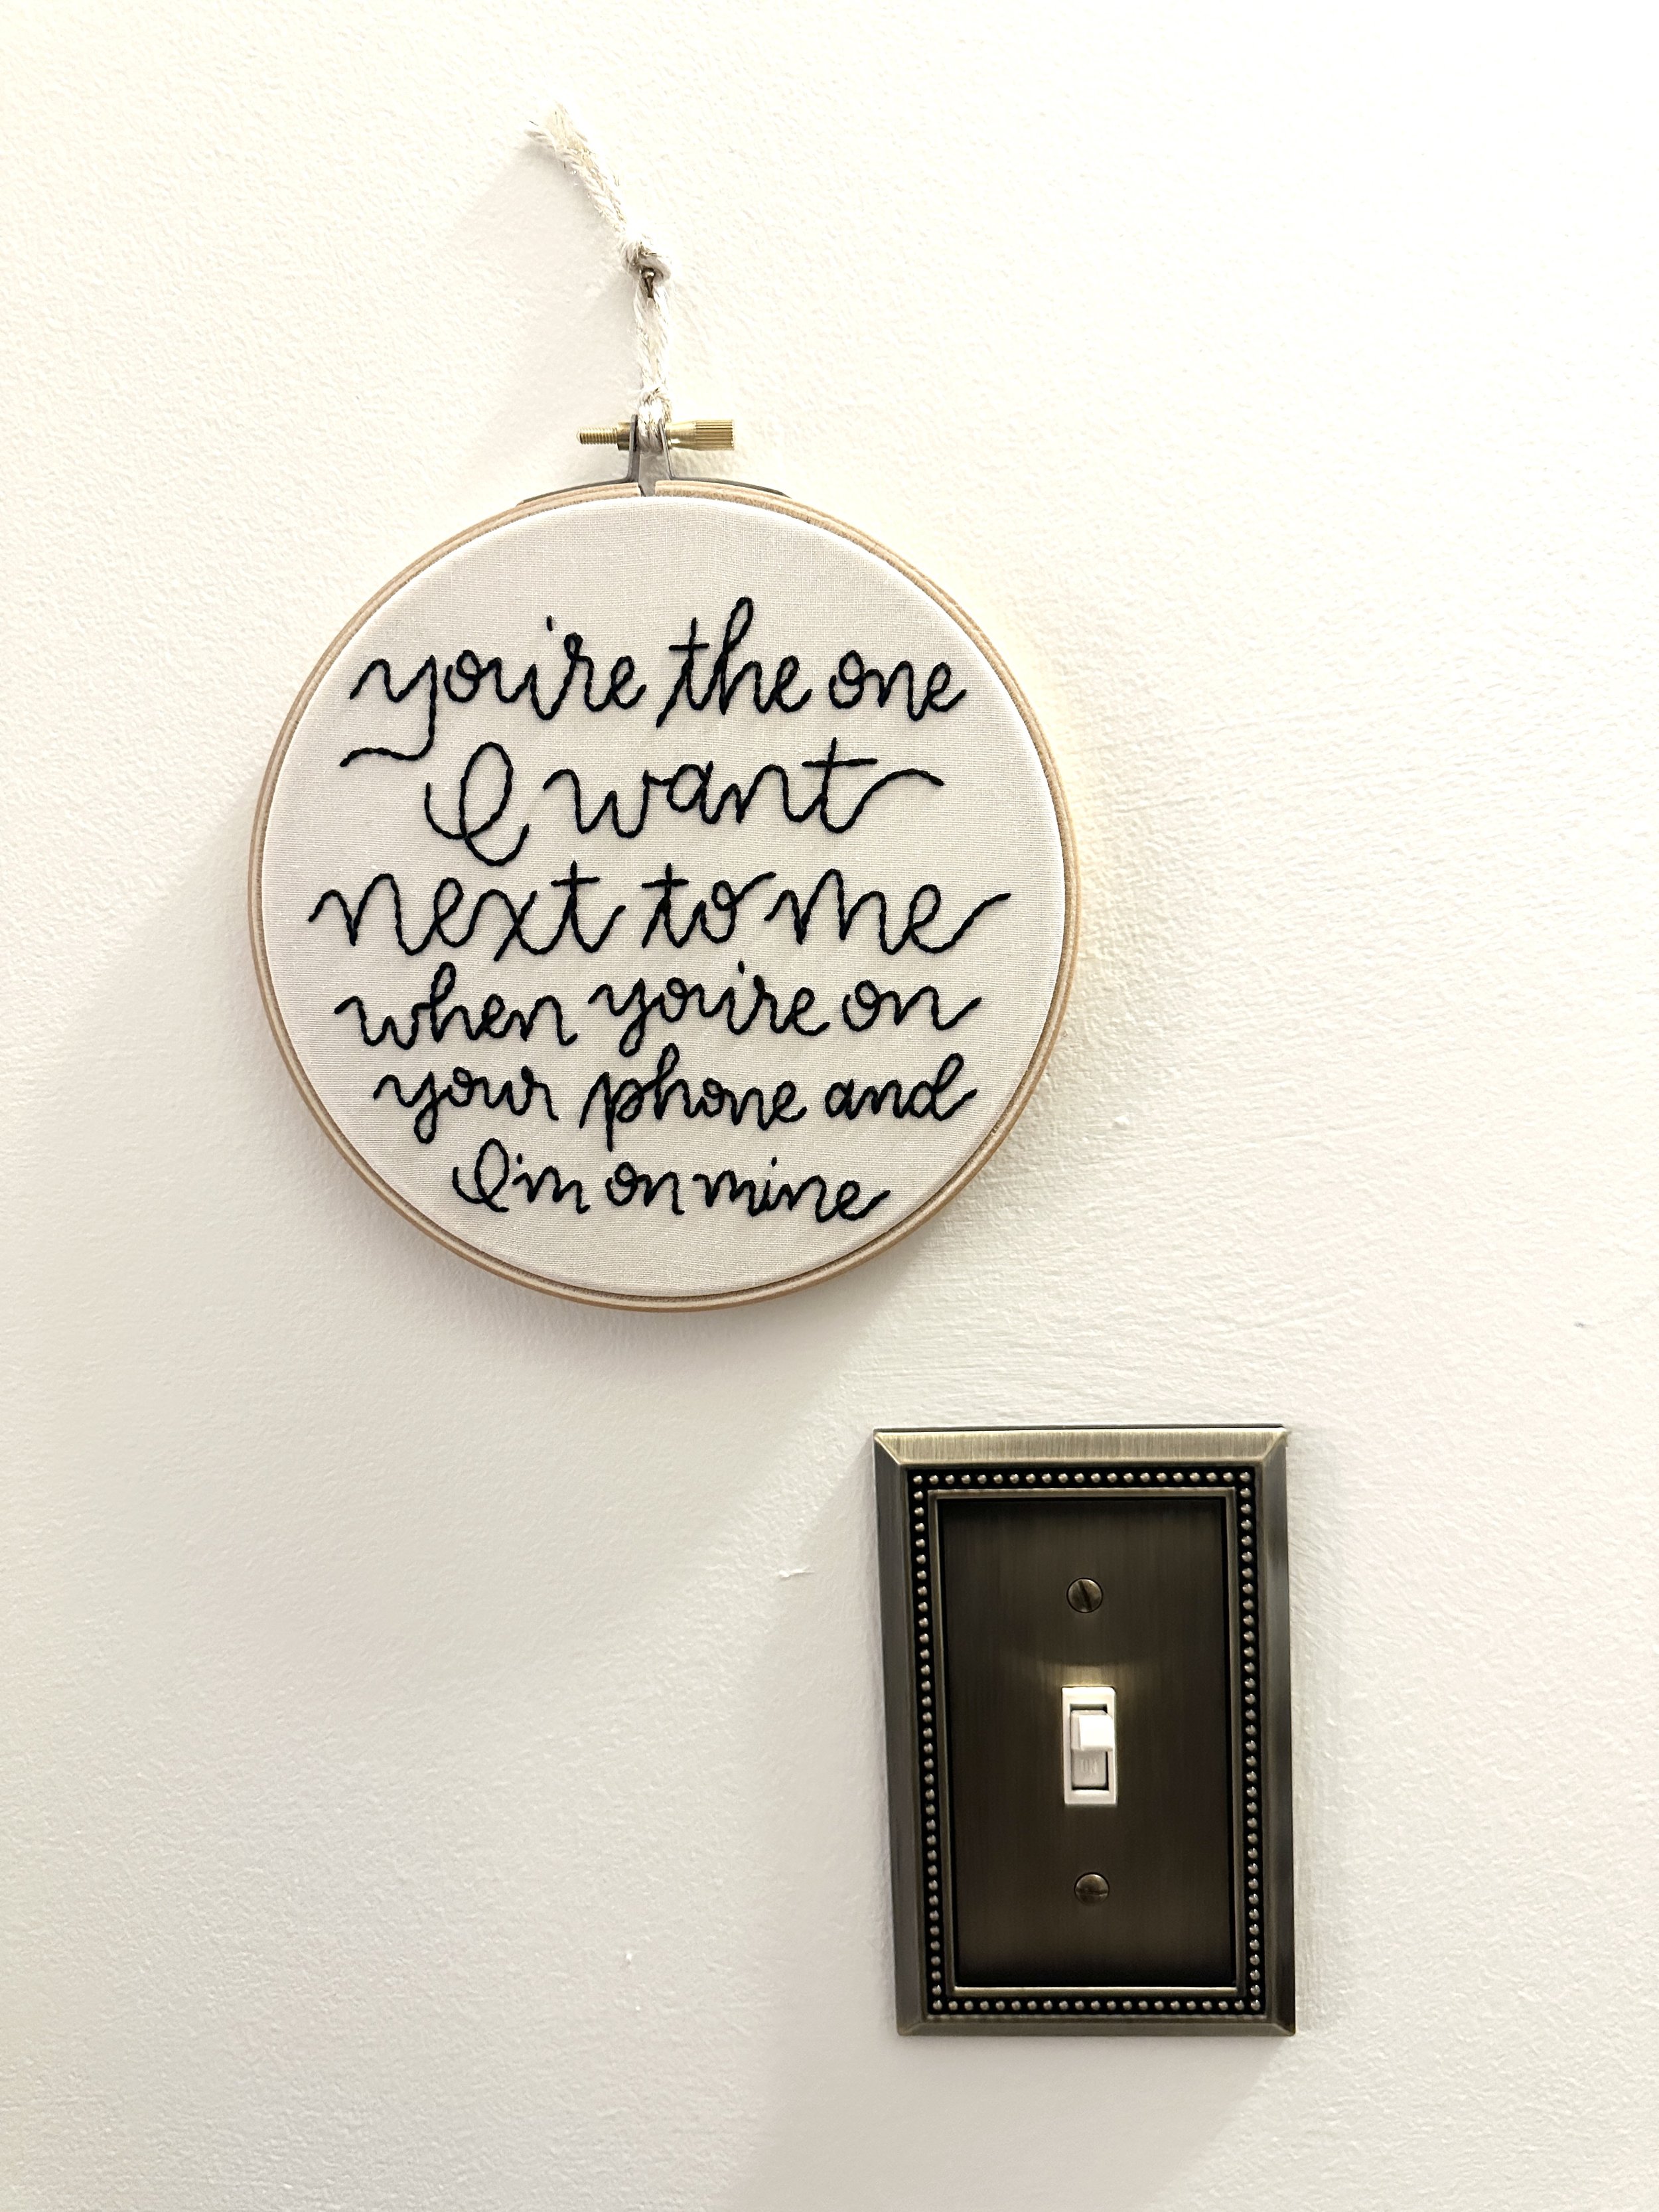 you're the one
I want
next to me
when you're on
your phone and
I'm on mine
ON